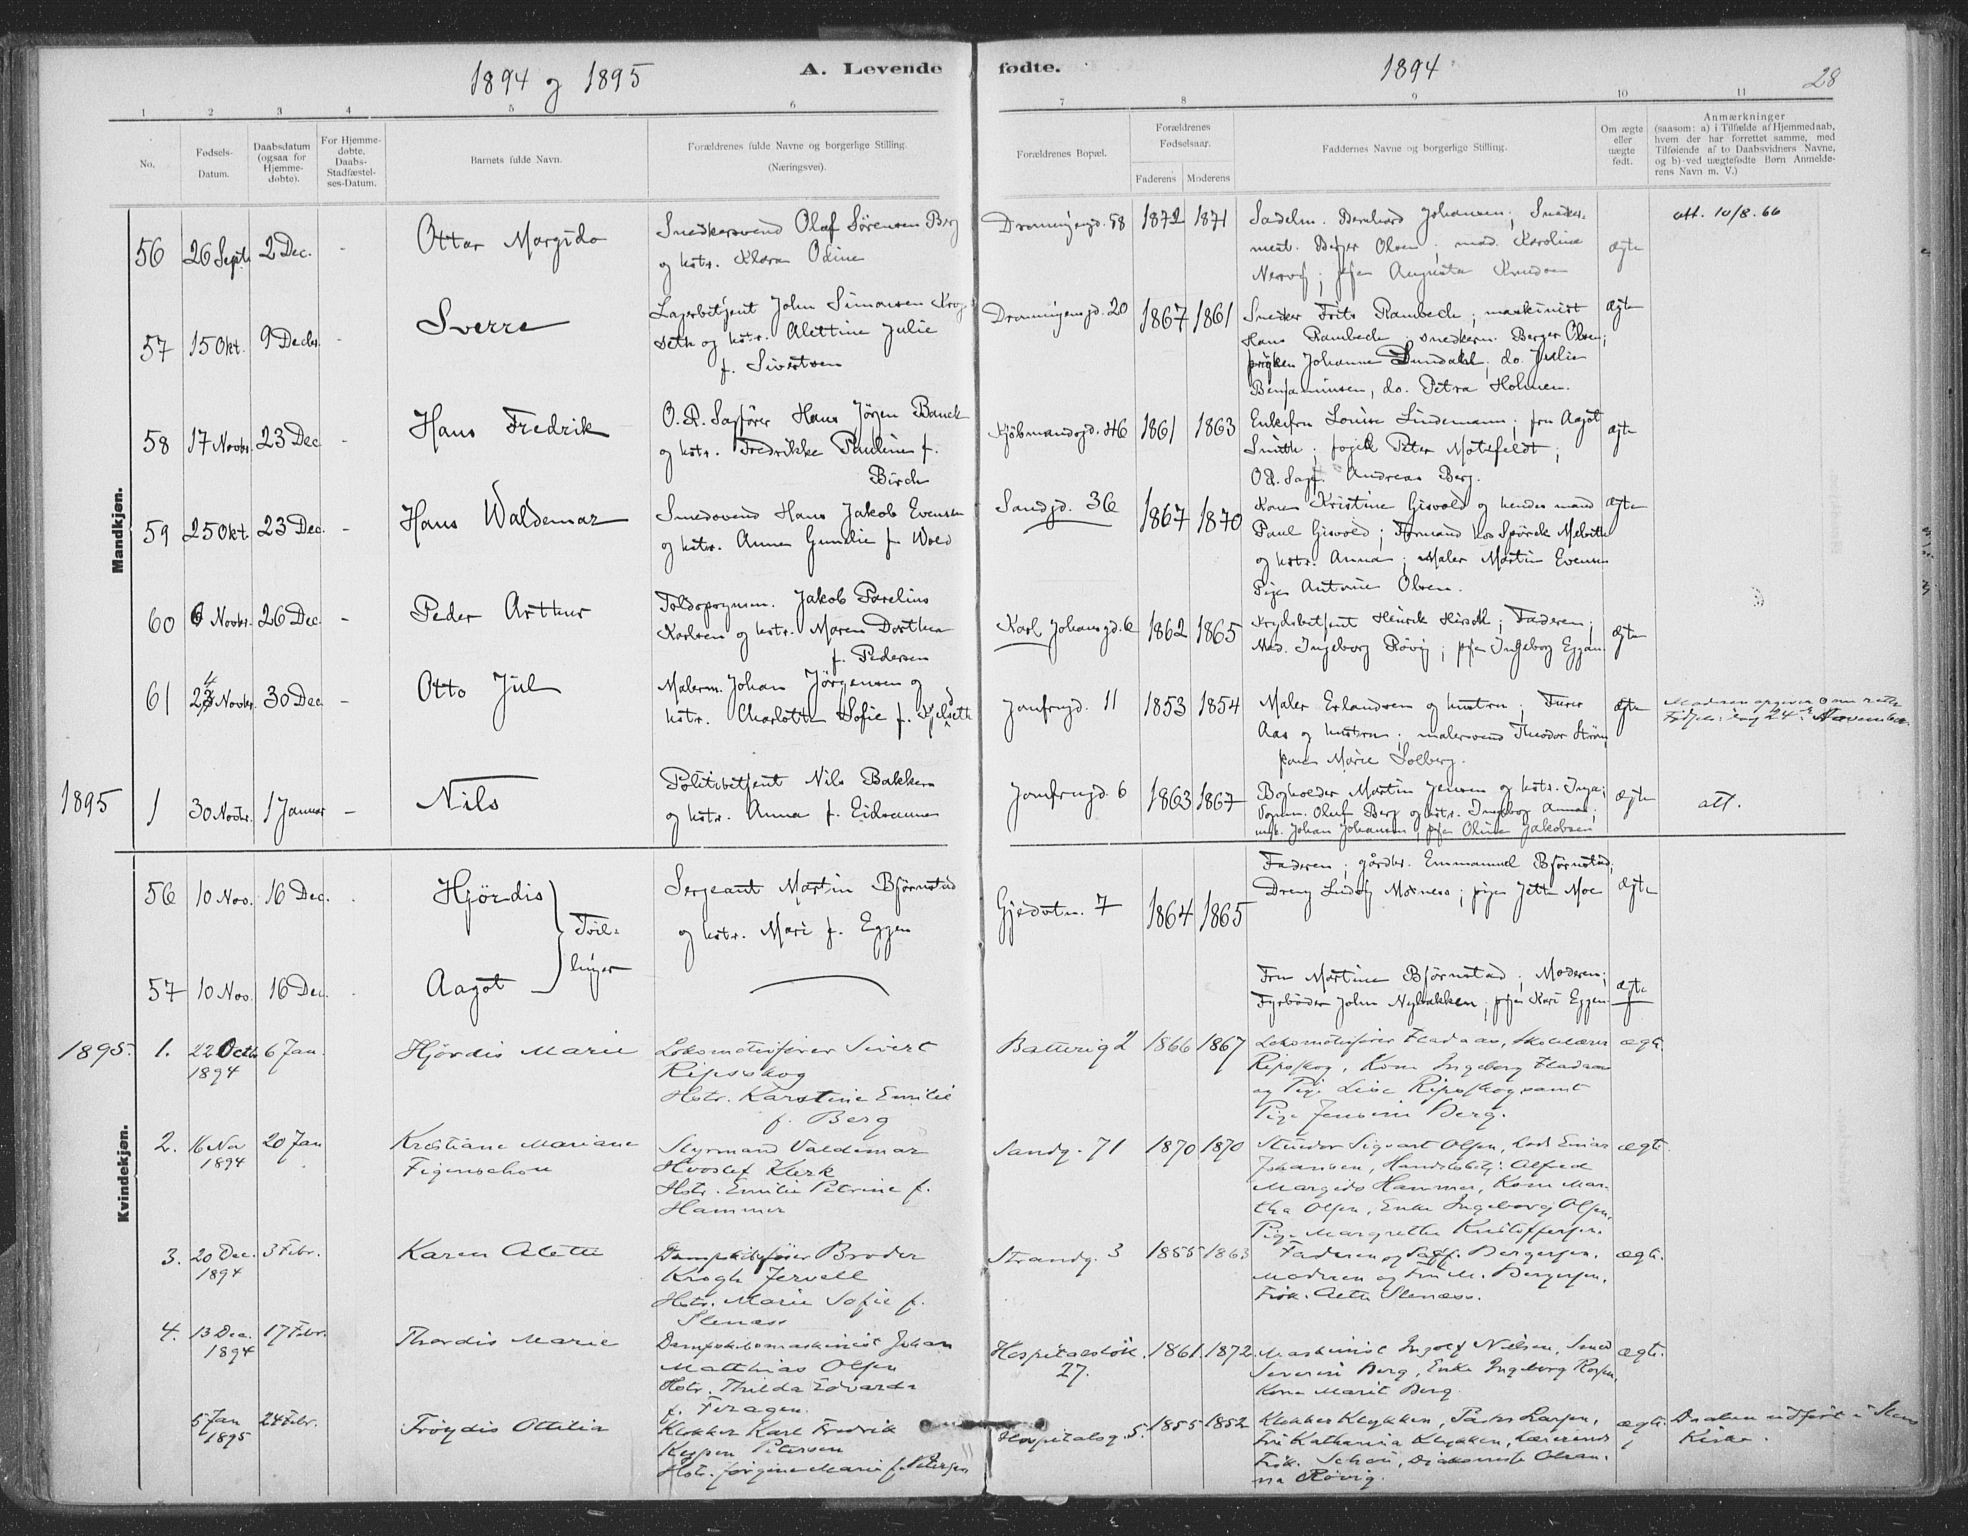 1894 og 1895
A. Levende
fødte.
1894
28
1
2
3
4
5
6
7
8
9
10
11
No.
Fødsels-
Datum.
Daabsdatum
(ogsaa for
Hjemme-
døbte).
For Hjemme-
døbte,
Daabs-
Stadfæstel-
ses-Datum.
Barnets fulde Navn.
Forældrenes fulde Navne og borgerlige Stilling.
(Næringsvei).
Forældrenes Bopæl.
Forældrenes
Fødselsaar.
Faderens
Moderens
Faddernes Navne og borgerlige Stilling.
Om ægte
eller
uægte
født.
Anmærkninger
(saasom: a) i Tilfælde af Hjemmedaab,
hvem der har forrettet samme, med
Tilføiende af to Daabsvidners Navne,
og b) ved uægtefødte Børn Anmelde-
rens Navn m. V.)
Mandkjøn.
56 26 Sept. 2 Dec. -
Ottar Margido
Snedkersvend Olaf Sørensen Berg
og hstr. Klara Odine
Dronningensgd. 58 1872 1871
Sadelm. Bernhard Johansen; Snedker-
mest. Birger Olsen; mad. Karoline
pigen Augusta Knudsen
ægte
att. 10/8. 66
57 15 Okt. 9 Decbr. -
Sverre
Lagerbetjent John Simonsen Krog-
seth og hstr. Alettine Julie
f. Sivertsen
Dronningensgd. 20 1867 1861
Snedker Frits Rambech; maskinist
Hans Rambech; snedkerm. Berger Olsen;
frøken Johanne Dundahl; do. Julie
Benjaminsen, do. Petra Holmen.
ægte
58 17 Novbr. 23 Dec. -
Hans Fredrik
O.R. Sagfører Hans Jörgen Bauck
og hstr. Fredrikke Pauline f.
Birch
Kjøbmandsgd. 46 1861 1863
Enkefru Louise Lindemann; fru Aagot
Smith; foged Peter Motzfeldt;
O.R. Sagf. Andreas Berg.
ægte
59 25 Okt. 23 Dec. -
Hans Waldemar
Smedsvend Hans Jakob Evensen
og hstr. Anna Gunelie f. Wold
Sandgd. 36 1867 1870
Kone Kristine Gisvold og hendes mand
Paul Gisvold; Formand hos Spörck
og hstr. Anna; Maler Martin Evensen
Pige Antonie Olsen.
ægte
60 6 Novbr. 26 Dec. -
Peder Arthur
Toldopsynsm. Jakob Parelius
Karlsen og hstr. Maren Dorthea
f. Pedersen
Karl Johansgd. 6 1862 1865
Krydsbetjent Henrik Hirsch; Faderen;
Mad. Ingeborg Røvig; pigen Ingeborg Eggan
ægte
61 24 Novbr. 30 Dec. -
Otto Jul
Malerm. Johan Jørgensen og
hstr. Charlotte Sofie f. Kjelseth
Jomfrugd. 11 1853 1854
Maler Erlandsen og hustru; Furer
Aas og hustru; malersvend Theodor Strøm;
pigen Marie Solberg.
ægte
Moderen opgiver som rette
Fødselsdag 24de November
1895
1 30 Novbr. 1 Januar -
Nils
Politibetjent Nils Bakken
og hstr. Anna f. Eidsaunet
Jomfrugd. 6 1863 1867
Bogholder Martin Jensen og hstr. Inga;
Vognm. Oluf Berg og hstr. Ingeborg Anna;
Johan Johansen; pigen Oline Jakobsen
ægte
att.
Kvindekjøn.
56 10 Nov. 16 Dec.
Hjørdis
Tvil-
linger
Sergeant Martin Bjørnstad
og hstr. Mari f. Eggen
Gjedvtn. 7 1864 1865
Faderen; gårdbr. Emmanuel Bjørnstad;
Dreng Ludvig Moxness; pigen Jette Moe
ægte
57 10 Nov. 16 Dec.
Aagot
Fru Martine Bjørnstad; Moderen;
Fyrbøder John Nybakken; pigen Kari Eggen
ægte
1895.
1. 22 Octb. 6 Jan.
1894
Hjördis Marie
Lokomotivfører Sivert
Ripsskog
Hstr. Karstine Emilie
f. Berg
Batterig 2 1866 1867
Lokomotivfører Fladaas, Skolelærer
Ripsskog, Kone Ingeborg Fladaas
og Pige Lise Ripsskog samt
Pige Jensine Berg.
ægte.
2. 16 Nov 20 Jan
1894
Kristiane Mariane
Figenschou
Styrmand Valdemar
Hvoslef Klerk
Hstr. Emilie Petrine f.
Hammer
Sandg. 71 1870 1870
Stuudor Sigvart Olsen, Lods Einar
Johansen, Handelsbetj: Alfred
Margido Hammer, Kone Mar-
tha Olsen, Enke Ingeborg Olsen,
Pige Margrethe Kristoffersen.
ægte.
3. 20 Dec. 3 Febr.
1894
Karen Alette
Dampskibsfører Broder
Krogh Jervell
Hstr. Marie Sofie f.
Stenæss
Strandg. 3 1855 1863
Faderen og Sagf. Bergersen.
Moderen og Fru M. Bergersen,
Frøk. Aette Stenæss.
ægte.
4. 13 Dec. 17 Febr.
1894
Thordis Marie
Dampskibsmaskinist Johan
Matthias Olsen
Hstr. Thilda Edvarda
f. Feragen.
Hospitalsløk. 1861. 1872.
27.
Maskinist Ingolf Nielsen, Smed
Severin Berg, Enke Ingeborg Rosen,
Kone Marit Berg.
ægte.
5 Jan 24 Febr.
1895
Fröydis Ottilia
Klokker Karl Fredrik
Keypen Petersen
Hstr. Jørgine Marie f. Petersen
Hospitalsg. 5. 1855 1852
Klokker Klykken, Pastor Larsen,
Fru Katharina Klykken, Lærerinde
Frøk. Schou, Diakonisse Olean-
na Røvig.
ægte
Daaben udført i
Kirke.